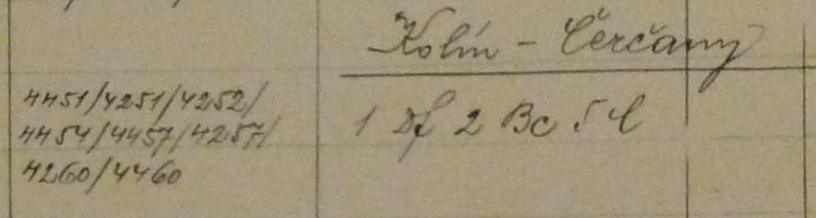 Kolín – Čerčany
4451/4251/4252/
4454/4457/4257/
4260/4460
1 Df 2 Bc 5 C